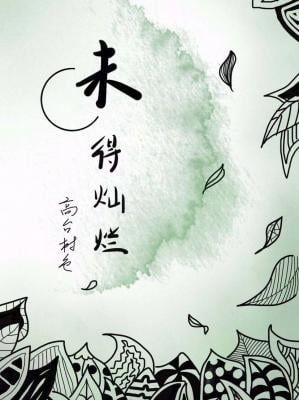 未得灿烂
高台树色